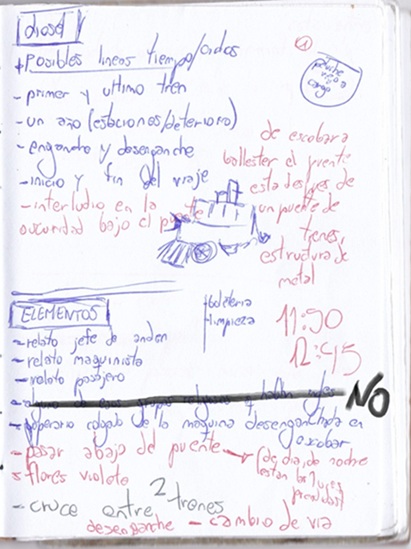 diesel
+ posibles lineas tiempo/cidos
- primer y ultimo tren
- un año (estaciones/deterioro)
- enganche y desenganche
- inicio y fin del viaje
- interludio en la
oscuridad bajo el puente
1
de escobar a
ballester el puente
esta despues de
un puente de
trenes,
estructura de
metal
ELEMENTOS
- relato jefe de anden
- relato maquinista
- relato pasajero
+ boleteria
+ limpieza
11:50
12:45
NO
- operario colgado de la maquina desenganchada en
escobar
- pasar abajo del puente
(de dia, de noche
estan las luces
prendidas)
flores violeta
- cruce entre 2 trenes
desenganche - cambio de via